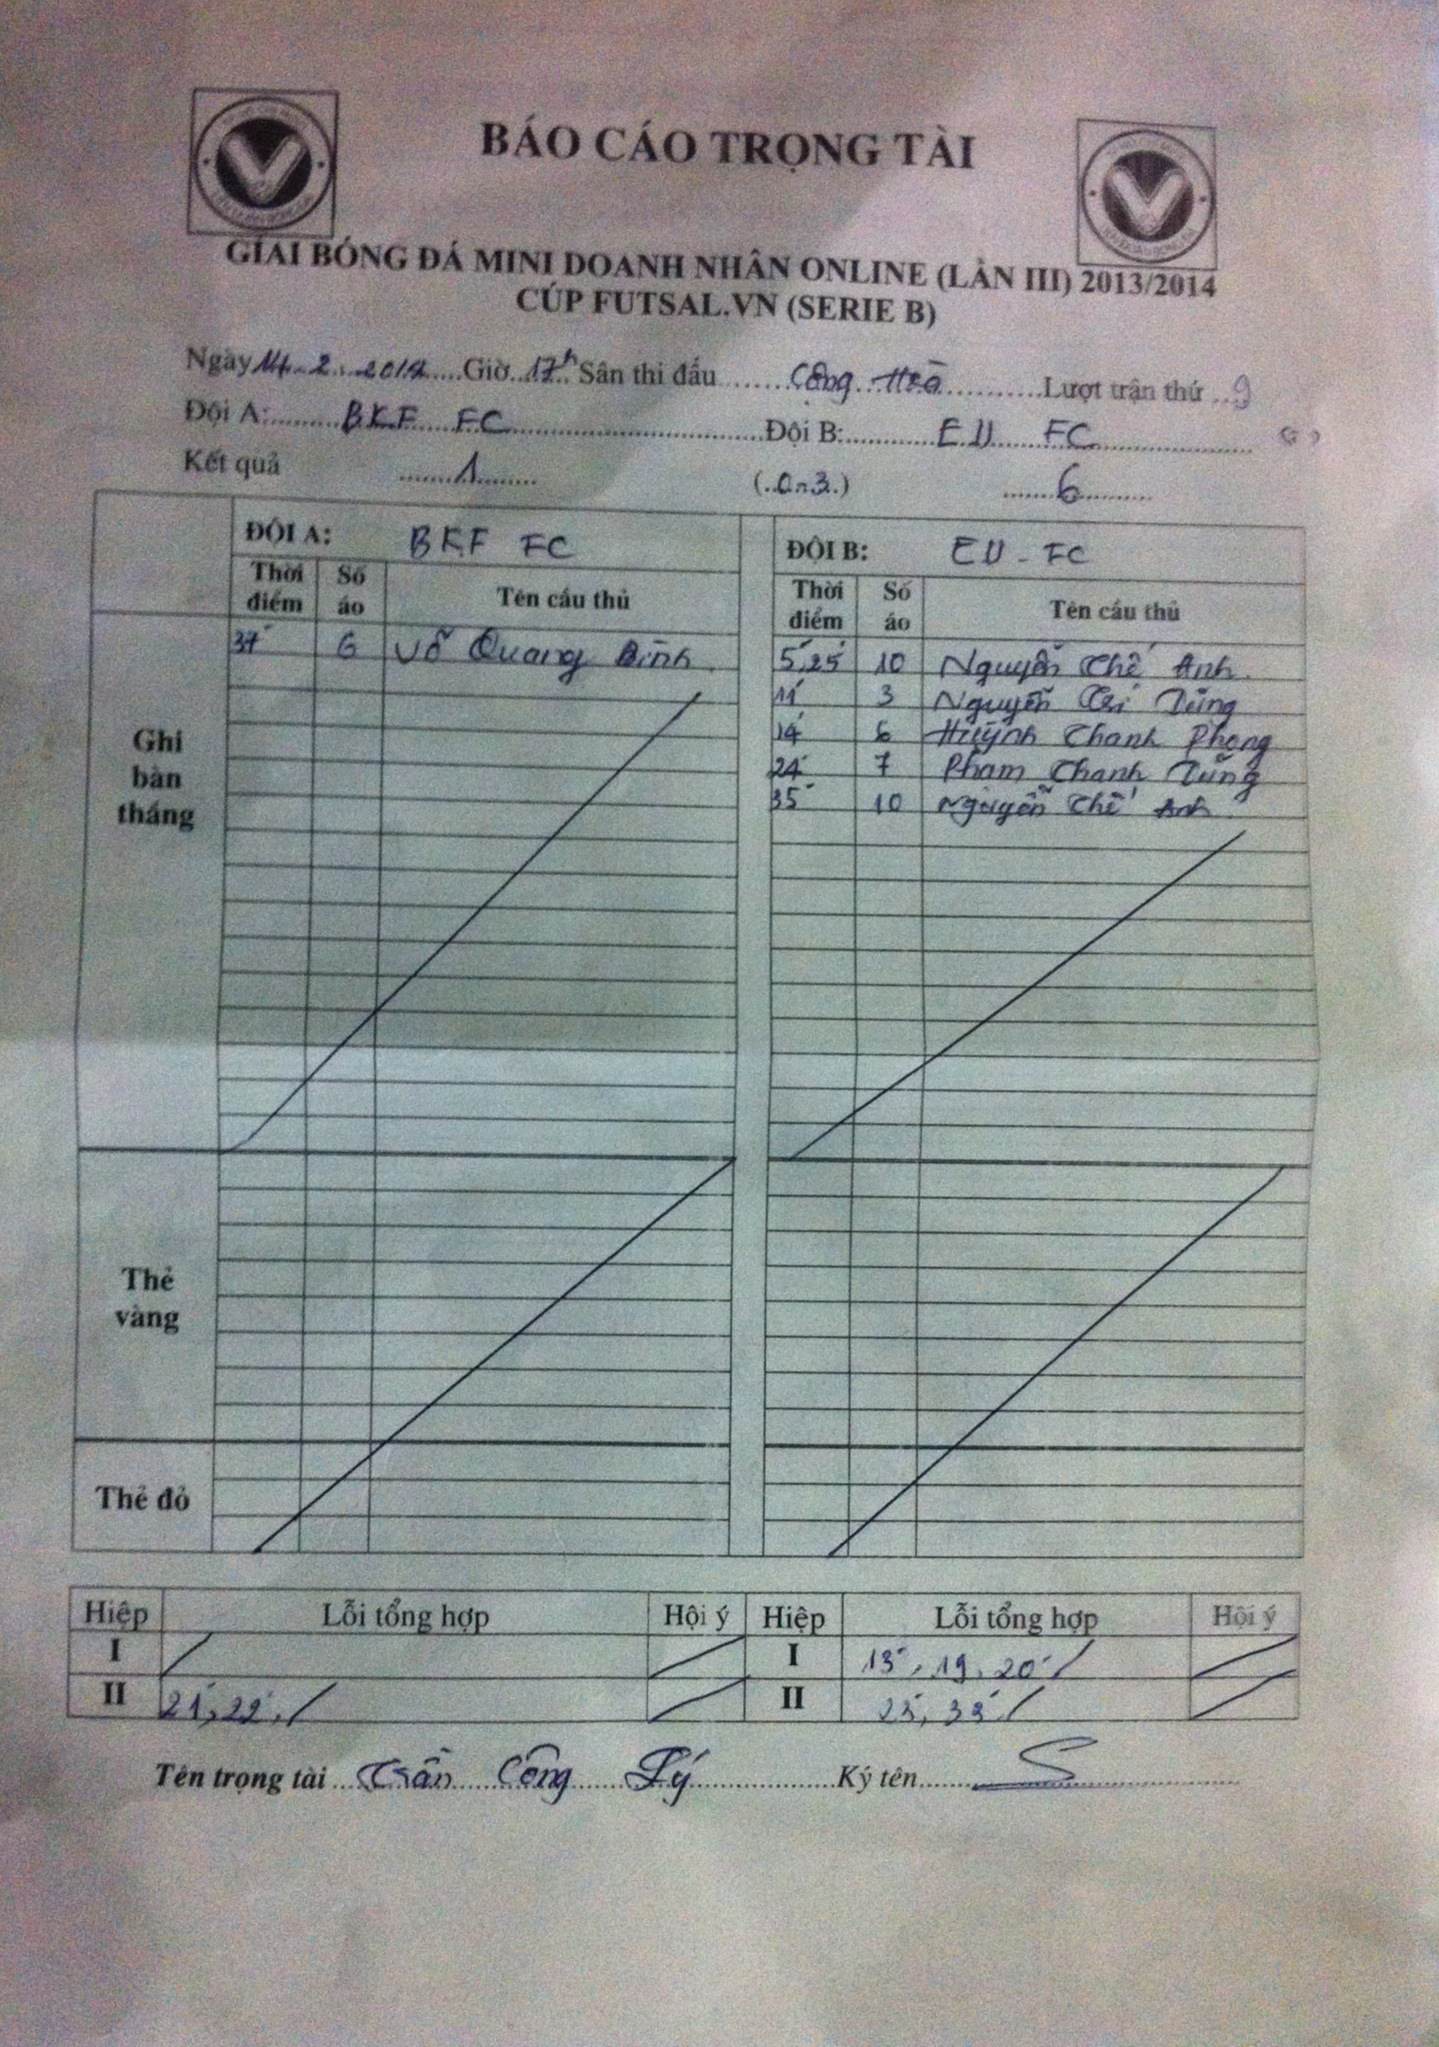 BÁO CÁO TRỌNG TÀI
GIẢI BÓNG ĐÁ MINI DOANH NHÂN ONLINE (LẦN III) 2013/2014
CÚP FUTSAL.VN (SERIE B)
Ngày 14.2.2014 Giờ 17h Sân thi đấu Cộng Hoà Lượt trận thứ 9
Đội A: BKF FC Đội B: EU FC
Kết quả 1 (0-3) 6
ĐỘI A: BKF FC ĐỘI B: EU - FC
Thời điểm Số áo Tên cầu thủ Thời điểm Số áo Tên cầu thủ
Ghi bàn thắng
37' 6 Võ Quang Bình 5', 25' 10 Nguyễn Thế Anh
11' 3 Nguyễn Trí Dũng
14' 6 Huỳnh Thanh Phong
24' 7 Phạm Thanh Dũng
35' 10 Nguyễn Thế Anh
Thẻ vàng
Thẻ đỏ
Hiệp Lỗi tổng hợp Hội ý Hiệp Lỗi tổng hợp Hội ý
I I 13', 19', 20'
II 21', 22' II 23', 33'
Tên trọng tài Trần Công Lý Ký tên